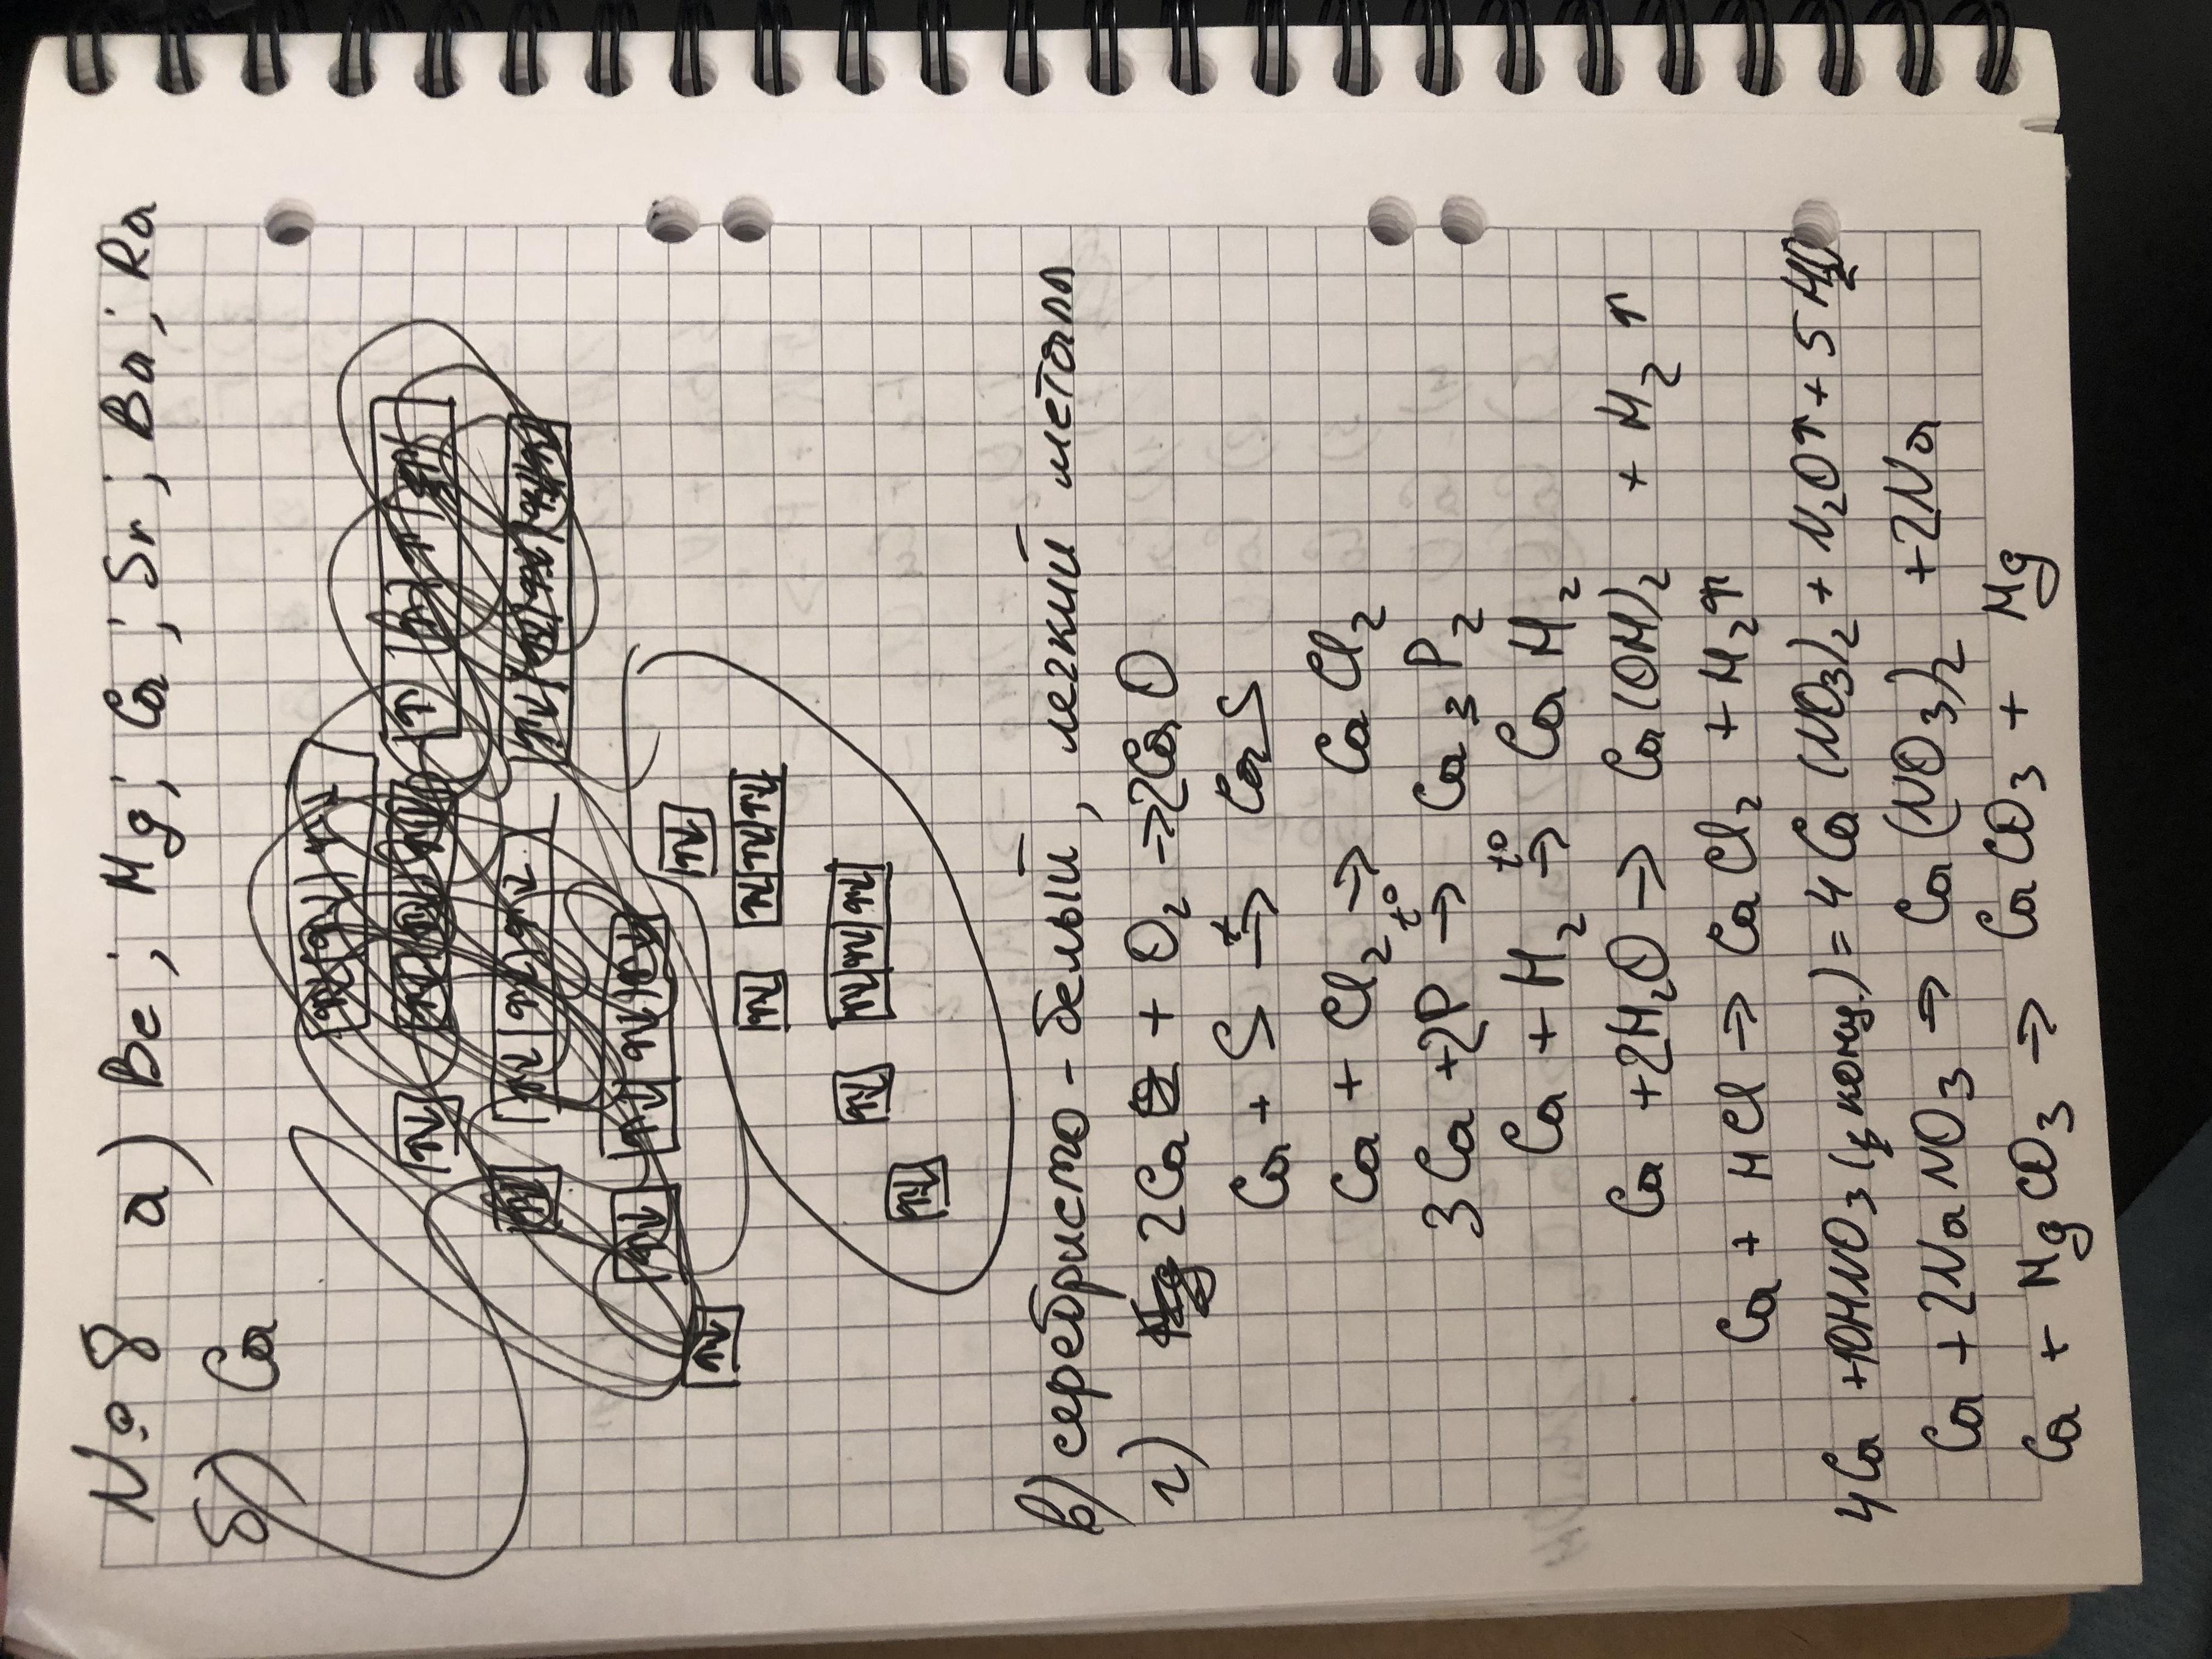 № 8 а) Be; Mg; Ca; Sr; Ba; Ra
б) Ca
в) серебристо-белый, легкий металл
г) 2Ca + O2 → 2CaO
Ca + S t→ CaS
Ca + Cl2 → CaCl2
3Ca + 2P t°→ Ca3P2
Ca + H2 t°→ CaH2
Ca + 2H2O → Ca(OH)2 + H2↑
Ca + HCl → CaCl2 + H2↑
4Ca + 10HNO3 (конц.) = 4Ca(NO3)2 + N2O↑ + 5H2O
Ca + 2NaNO3 → Ca(NO3)2 + 2Na
Ca + MgCO3 → CaCO3 + Mg